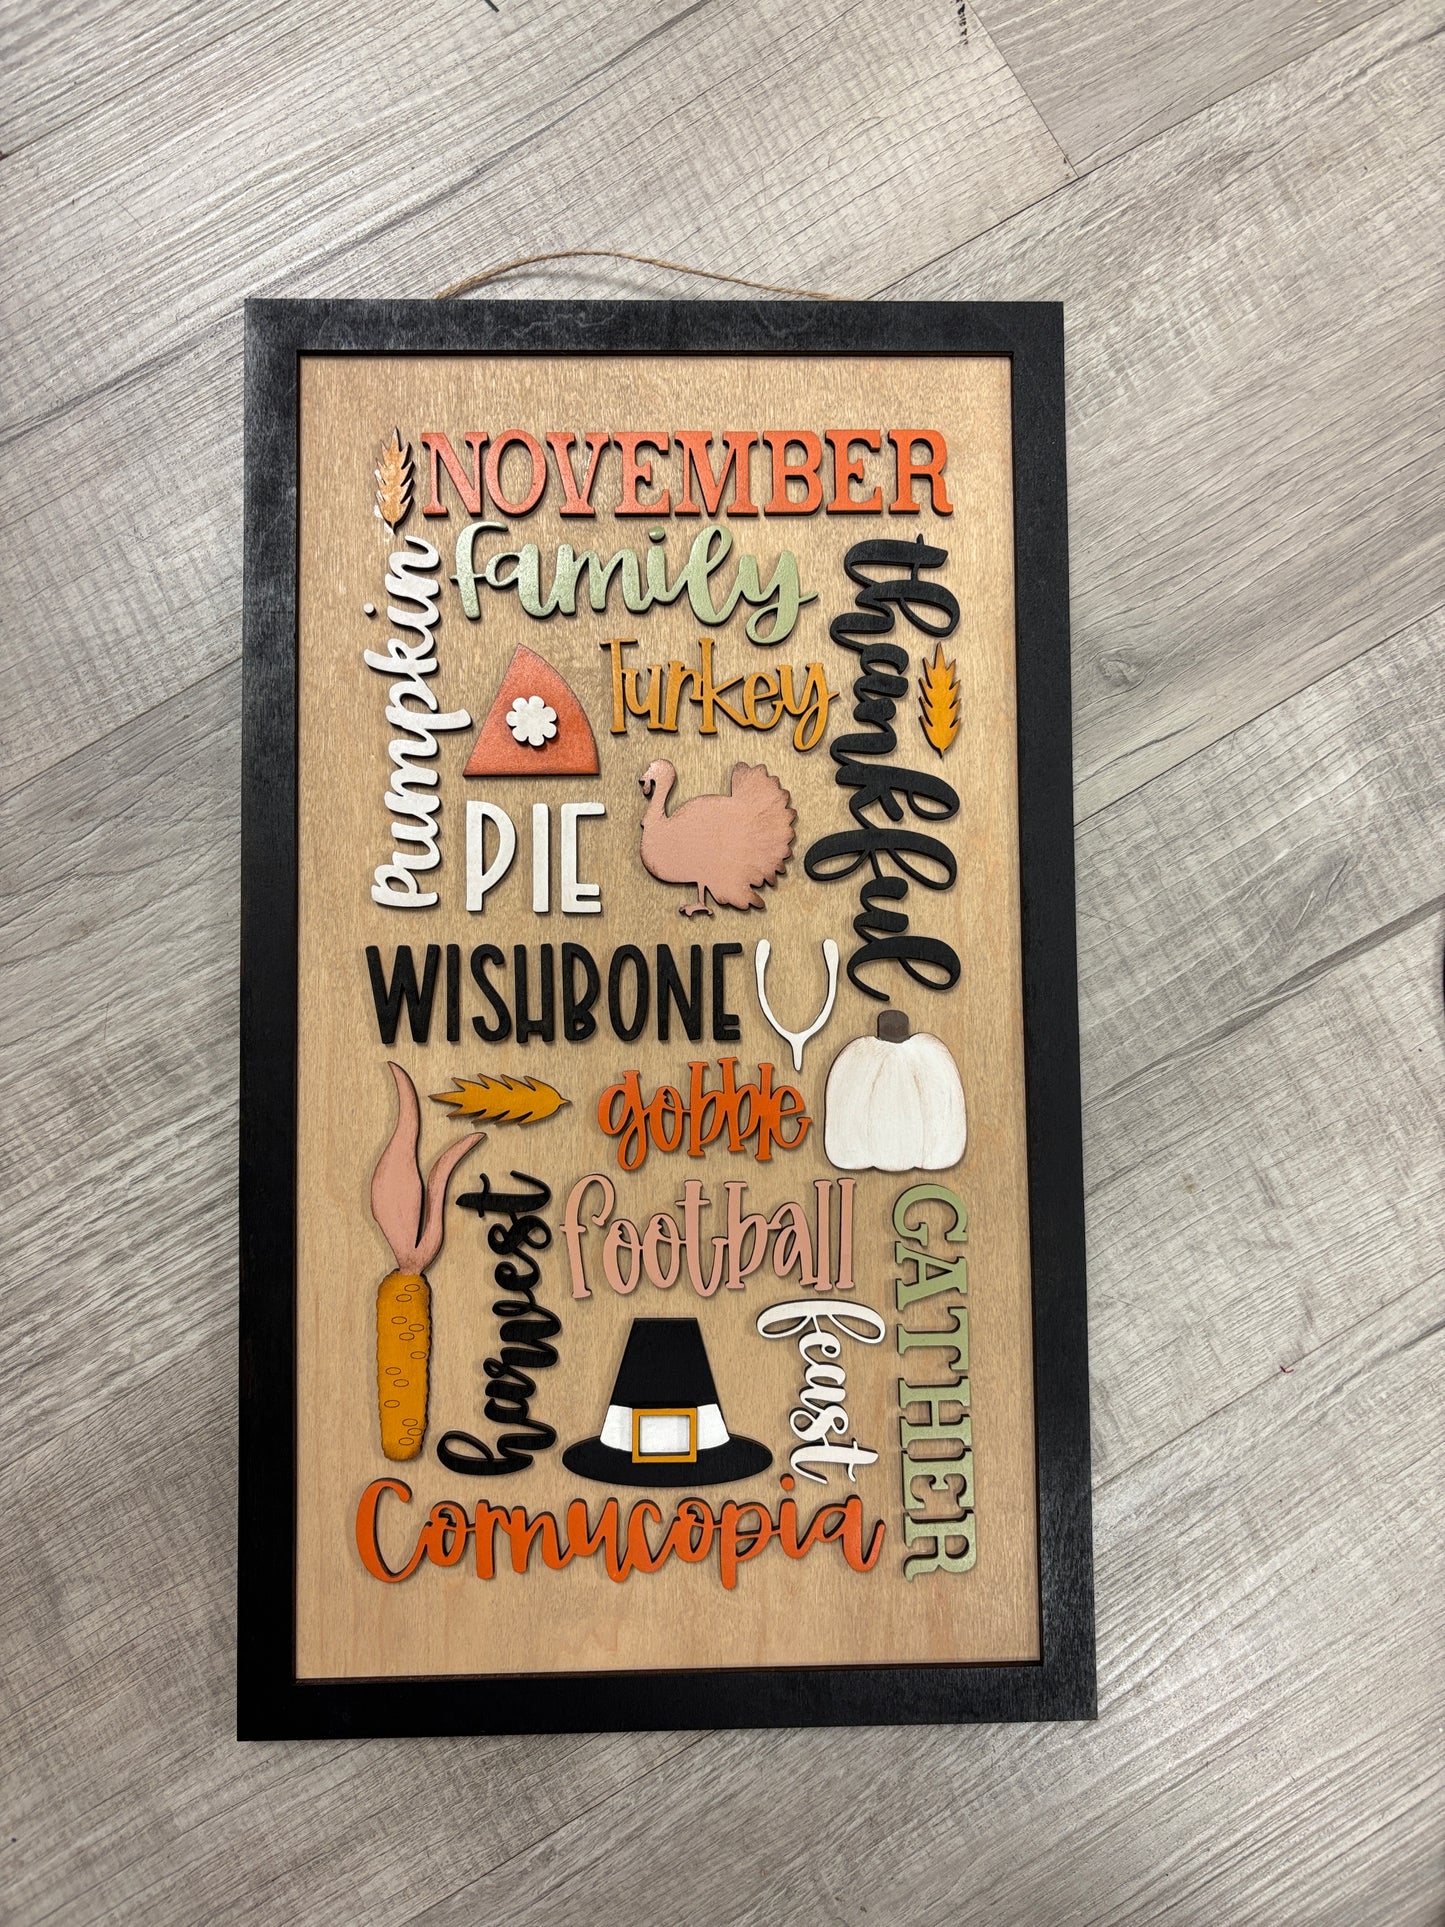 NOVEMBER
family
pumpkin
thankful
Turkey
PIE
WISHBONE
gobble
harvest
football
GATHER
feast
Cornucopia